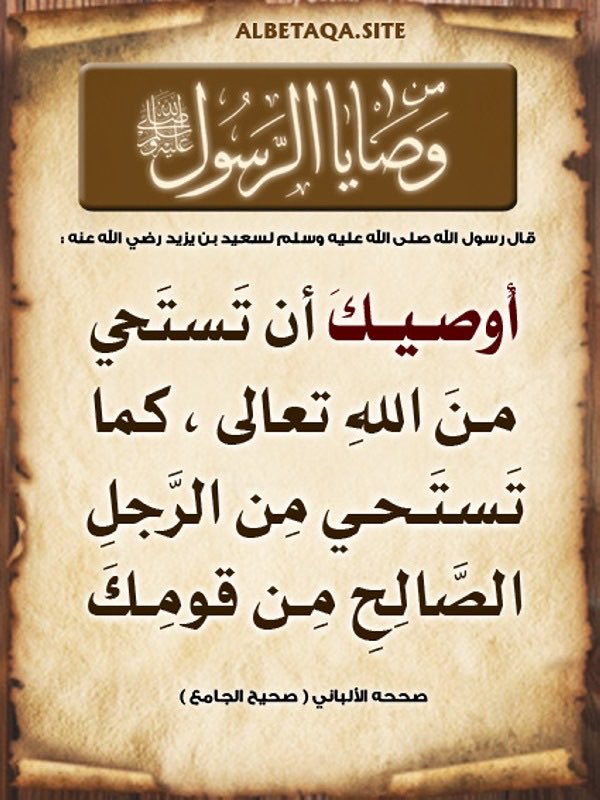 ALBETAQA.SITE
من وصايا الرسول صلى الله عليه وسلم
قال رسول الله صلى الله عليه وسلم لسعيد بن يزيد رضي الله عنه :
أُوصيـكَ أن تَستَحي
منَ اللهِ تعالى ، كما
تَستَـحي مِن الرَّجلِ
الصَّالِحِ مِـن قومِـكَ
صححه الألباني ( صحيح الجامع )